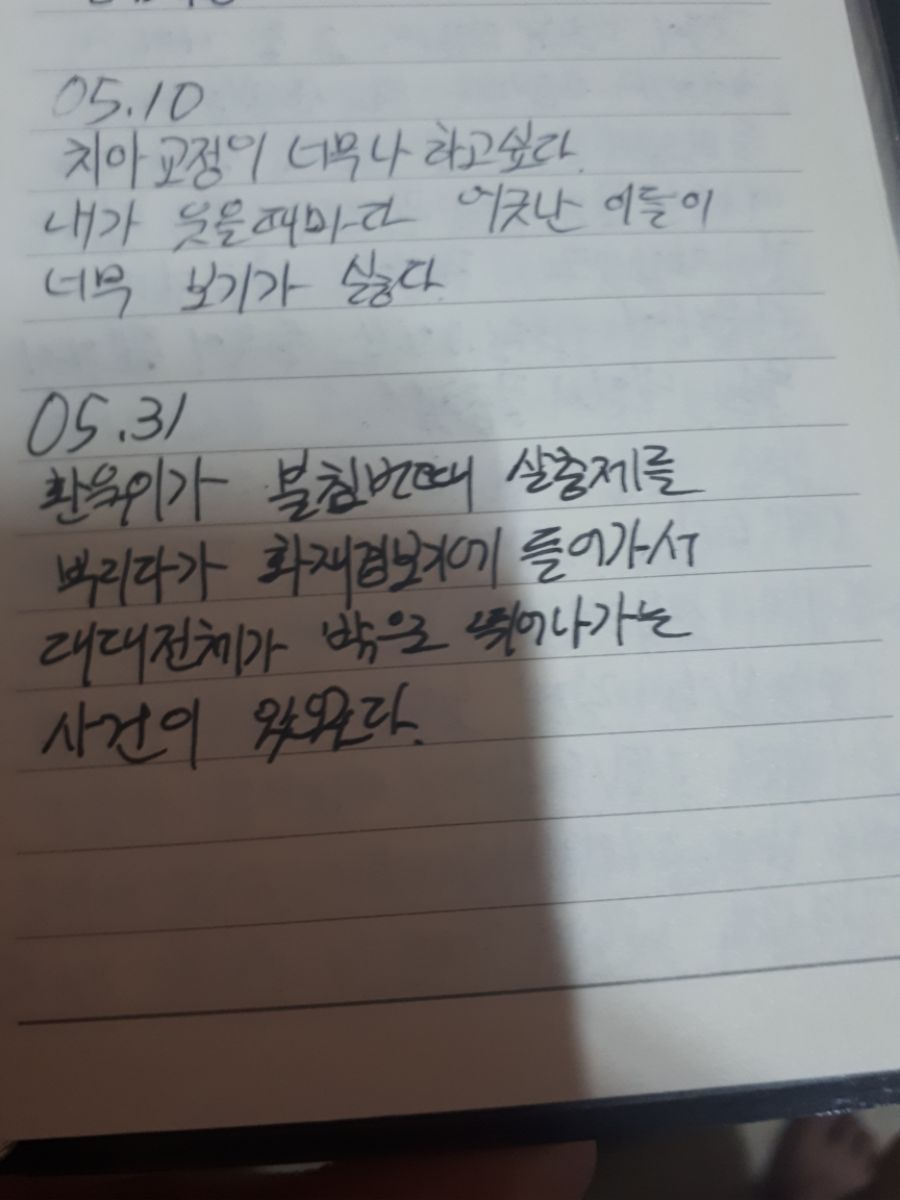 05.10
치아 교정이 너무나 하고싶다.
내가 웃을때마다 어긋난 이들이
너무 보기가 싫다.
05.31
환욱이가 불침번때 살충제를
뿌리다가 화재경보기에 들어가서
대대전체가 밖으로 뛰어나가는
사건이 있었다.